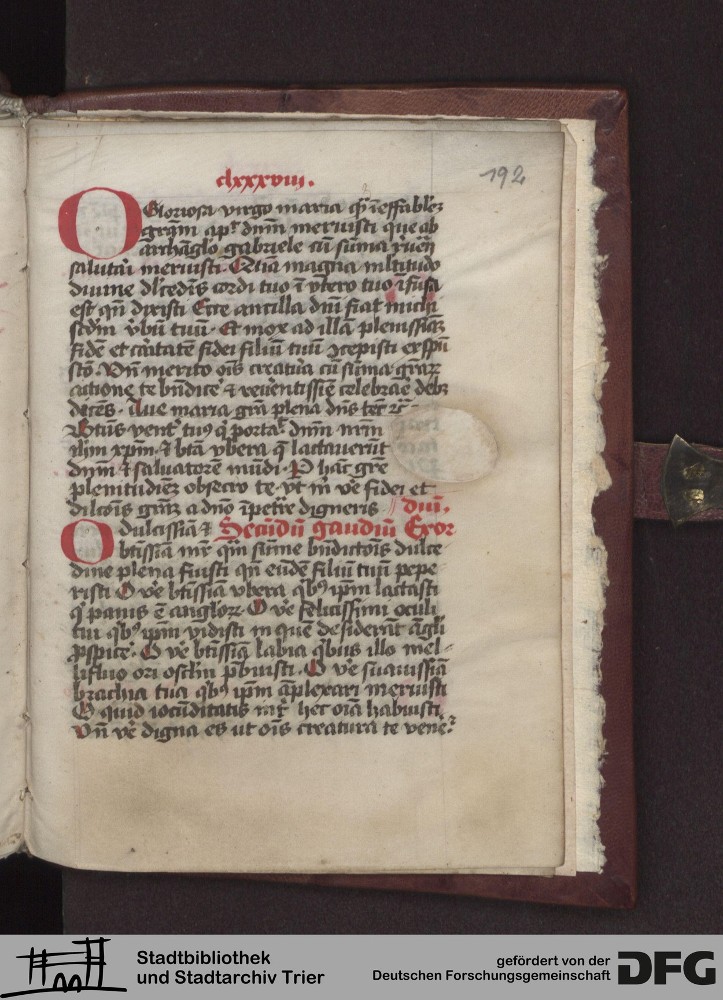 clxxxviij.
192
O Gloriosa virgo maria q̄ ineffablez
gr̄am ap̄ᵈ dnm̄ meruisti que ab
archāglo gabriele cū sūma
salutari meruisti. Quia magna mltitudo
diuine dlcedīs cordi tuo ī vtero tuo īfusa
est qn̄ dixisti Ecce ancilla dnī fiat michi
scdm̄ vbū tuū. Et mox ad illā plenissiāz
fidē et caritatē fidei filiū tuū ɔcepisti ex spū
sctō. Vn̄ merito oīs creatura cū sūma graz
actione te bn̄dicē ⁊ reuerentissie celebrāe debz
dicēs. Aue maria gr̄a plena dn̄s tec̄ ꝛc̄
Btūs vent͛ tuꝰ q̄ portaͭ dnm̄ nrm̄
ihm xpm̄. ⁊ btā vbera q̄ lactauerūt
dnm̄ ⁊ saluatorē mūdi. P hāc gr̄e
plenitudinēz obsecro te. vt m̄ ve fidei et
dilcōis grāz a dn̄o īpetrē digneris // diū.
O dulcissiā ⁊ Secūdū gaudiū Exor
btissiā mr̄ qm̄ sūme bn̄dictōis dulce
dine plena fuisti qn̄ eūdē filiū tuū pepe
risti O ve btissiā vbera qbꝰ ipm̄ lactasti
q̄ panis ē angloꝝ. O ve felicissimi oculi
tui qbꝰ ipm̄ vidisti in quē desiderāt āgli
ꝓspicē. O ve btissiā labia qbus illo mel-
lifluo ori osclm̄ p̄buisti. O ve suauissiā
brachia tua qbꝰ ipm̄ āplexari meruisti
O quid iocūditatis mr̄ hec oīa habuisti
Vn̄ ve digna es ut oīs creatura te vene
Stadtbibliothek
und Stadtarchiv Trier
gefördert von der
Deutschen Forschungsgemeinschaft
DFG